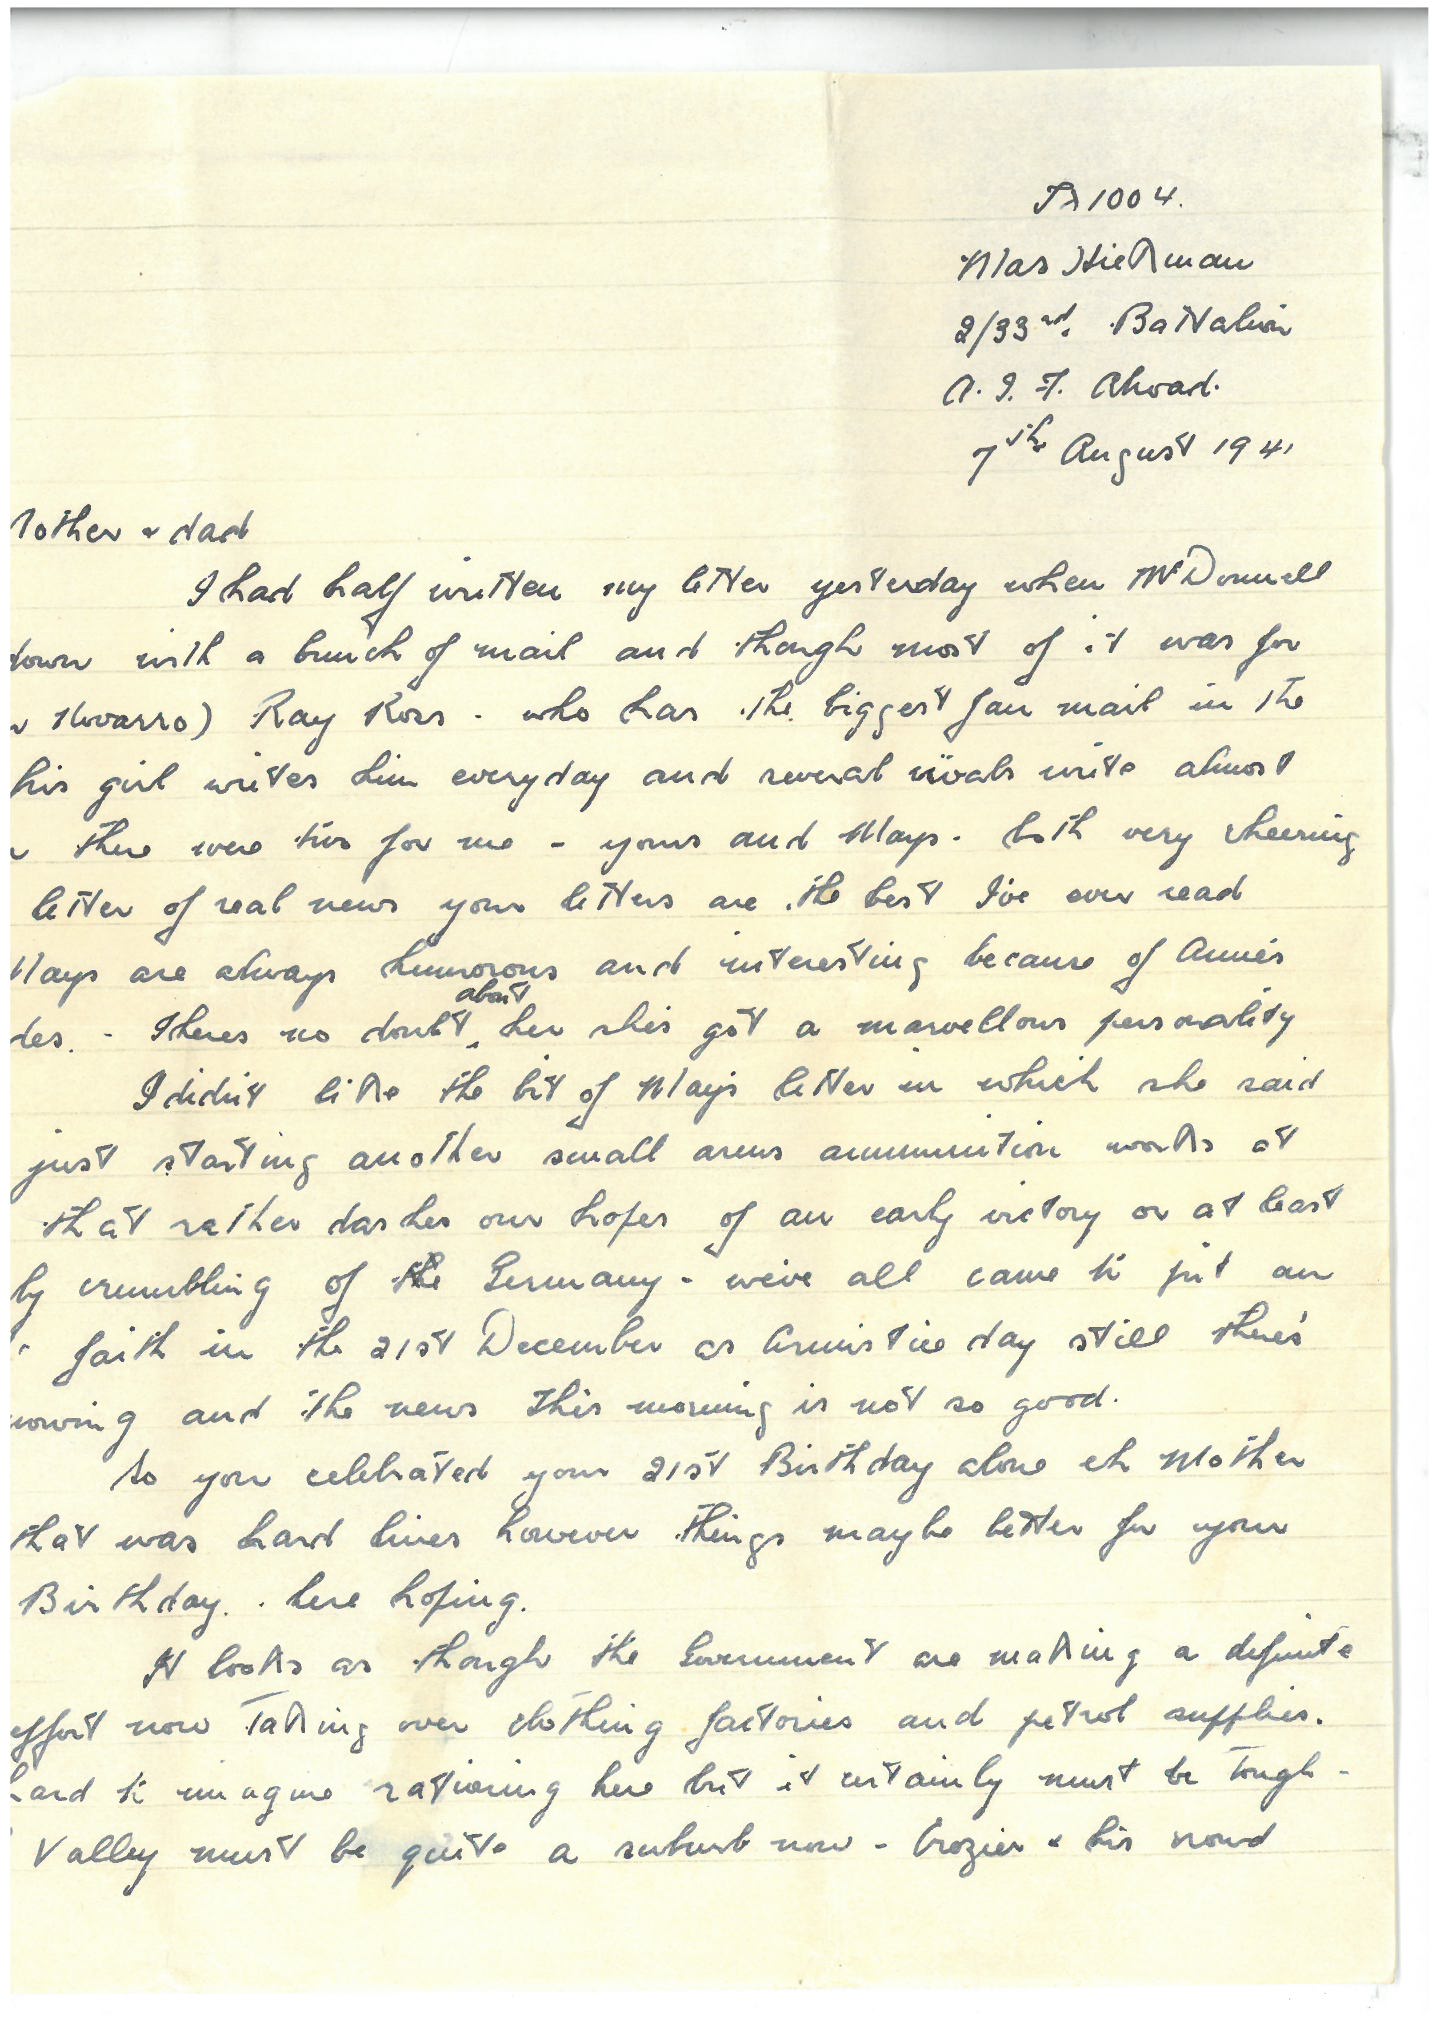 Tx1004.
Max Hickman
2/33rd. Battalion
A. I. F. Abroad.
7th August 1941
Mother & dad
I had half written my letter yesterday when McDonnell
down with a bunch of mail and though most of it was for
Novarro) Ray Ross - who has the biggest fan mail in the
his girl writes him everyday and several rivals write almost
there were two for me - yours and Mays. both very cheering
letter of real news your letters are the best I've ever read
Mays are always humorous and interesting because of Annes
des. - Theres no doubt about her shes got a marvellous personality
I didnt like the bit of Mays letter in which she said
just starting another small arms ammunition works at
that rather dashes our hopes of an early victory or at least
ly crumbling of the Germany - weve all came to put an
faith in the 21st December as Armistice day still there's
nowing and the news this morning is not so good.
So you celebrated your 21st Birthday alone eh Mother
that was hard lines however things maybe better for your
Birthday. . here hoping.
It looks as though the Government are making a definite
effort now Taking over clothing factories and petrol supplies.
hard to imagine rationing here but it certainly must be tough -
Valley must be quite a suburb now - Crozier & his crowd